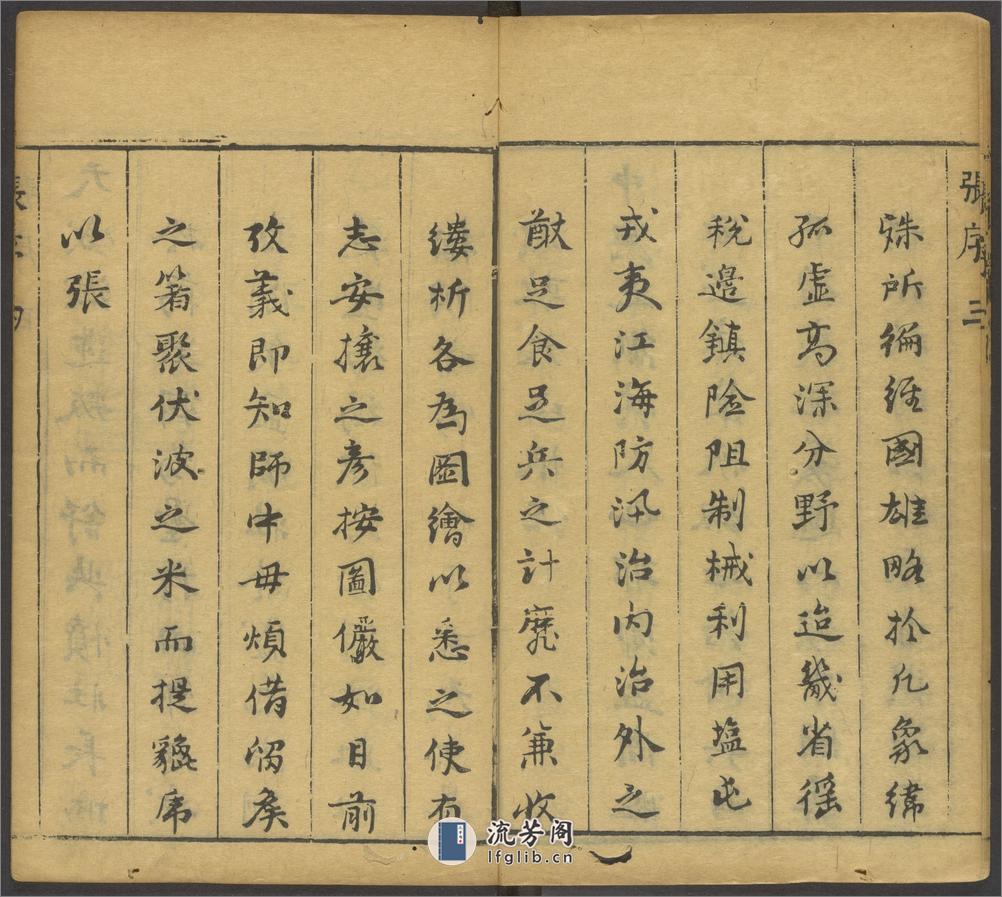 張序 三
殊所綱維國雄略扵凡象緯
孤虛高深分野以迨畿省徭
稅邊鎮險阻制械利用塩屯
戎夷江海防汛治内治外之
猷足食足兵之計靡不兼收
縷析各為圖繪以悉之使有
志安攘之彥按圖儼如目前
攷義即知師中毋煩借留矦
之箸聚伏波之米而提貔虎
以張
張序 四
流芳阁
lfglib.cn